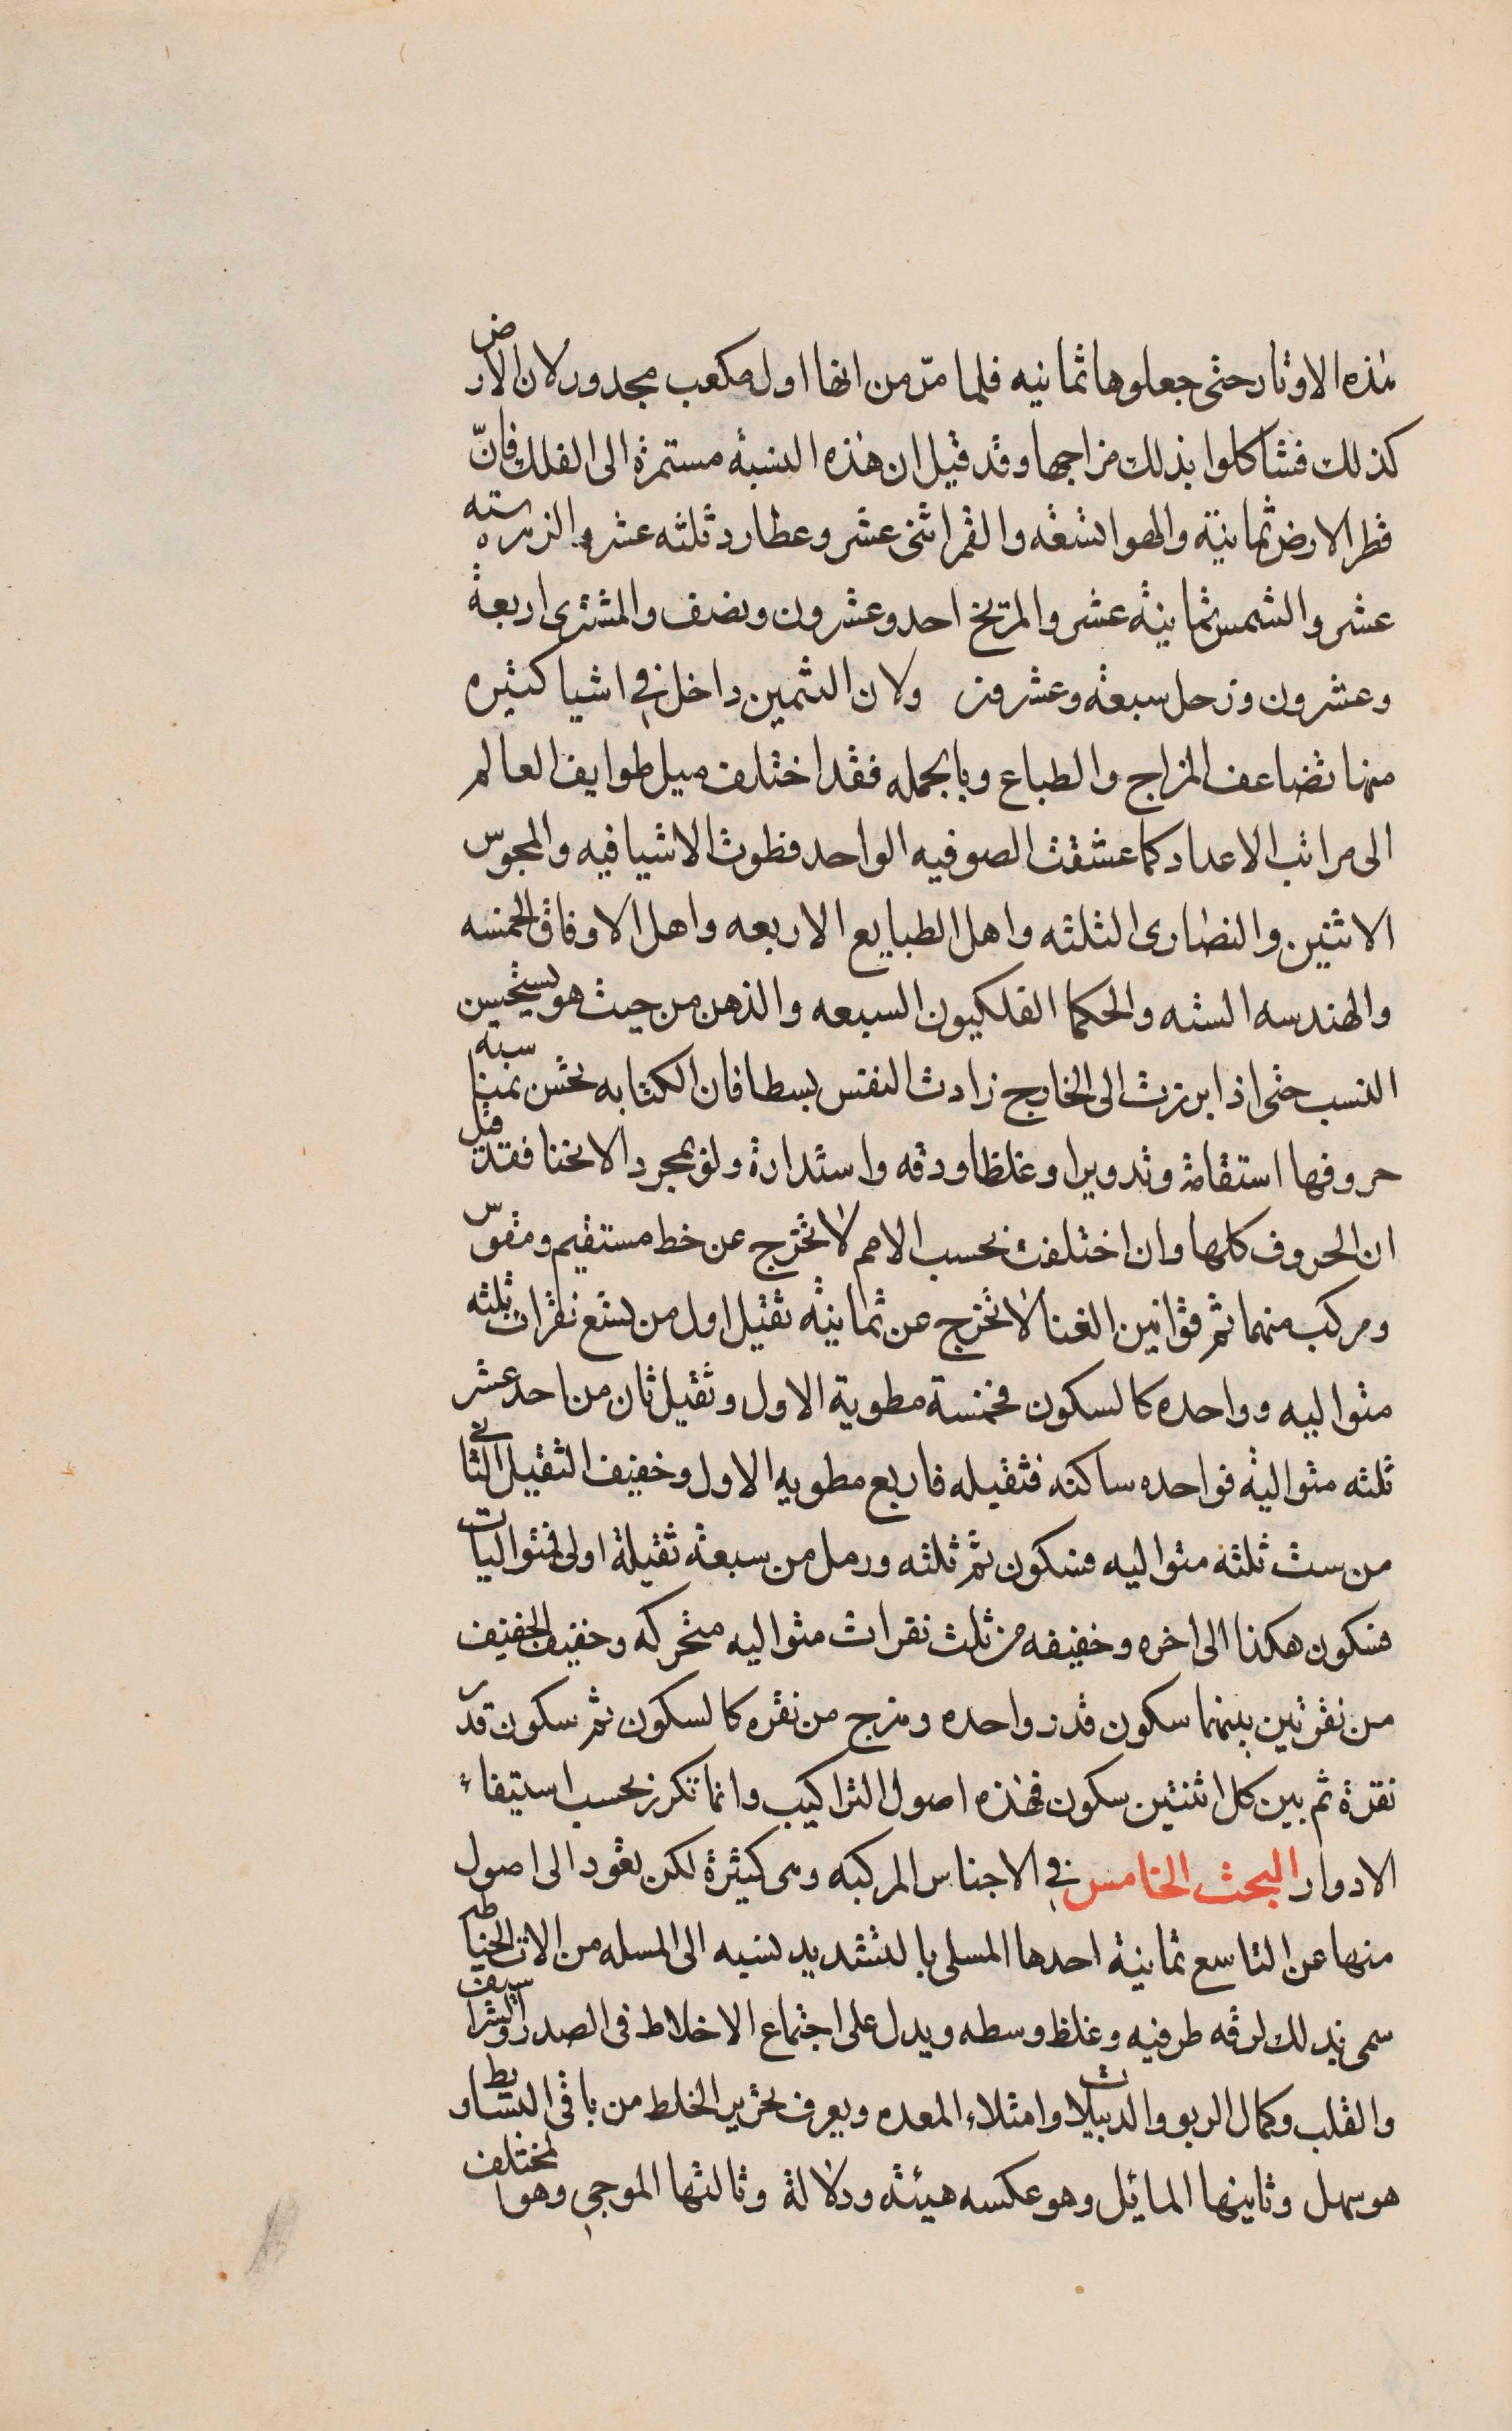 هذه الاوتار حتى جعلوها ثمانيه فلما مرّ من انها اول مكعب مجدور ولان الارض
كذلك فشاكلوا بذلك مزاجها وقد قيل ان هذه النسبة مستمرة الى الفلك فانّ
قطر الارض ثمانية والهوا تسعه والقمر اثنى عشر وعطارد ثلثه عشر والزهره سته
عشر والشمس ثمانية عشر والمريخ احد وعشرون ونصف والمشترى اربعة
وعشرون وزحل سبعة وعشرون ولان التثمين داخل في اشيا كثيره
منها تضاعف المزاج والطباع وبالجمله فقد اختلف ميل طوايف العالم
الى مراتب الاعداد كما عشقت الصوفيه الواحد فطوت الاشيا فيه والمجوس
الاثنين والنصارى الثلثه واهل الطبايع الاربعه واهل الاوفاق الخمسه
والهندسه الستة والحكما الفلكيون السبعه والذهن من حيث هو يستحسن
النسب حتى اذا برزت الى الخارج زادت النفس بسطا فان الكتابه تحسن بمناسبة
حروفها استقامة وتدويرا وغلظا ودقه واستدارة ولو بمجرد الانحنا فقد قيل
ان الحروف كلها وان اختلفت بحسب الامم لا تخرج عن خط مستقيم ومقوس
ومركب منهما ثم قوانين الغنا لا تخرج عن ثمانية ثقيل اول من تسع نقرات ثلثه
متواليه وواحده كالسكون فخمسة مطوية الاول وثقيل ثان من احد عشر
ثلثه متوالية فواحده ساكنه فثقيله فاربع مطويه الاول وخفيف الثقيل الثانى
من ست ثلثة متواليه فسكون ثم ثلثه ورمل من سبعة ثقيلة اولى فمتواليات
فسكون هكذا الى اخره وخفيفه من ثلث نقرات متواليه متحركه وخفيف الخفيف
من نقرتين بينهما سكون قدر واحده وهزج من نقره كالسكون ثم سكون قدر
نقرة ثم بين كل اثنتين سكون فهذه اصول التراكيب وانما تكرر بحسب استيفاء
الادوار البحث الخامس في الاجناس المركبه وهى كثيرة لكن يعود الى اصول
منها عن التاسع ثمانية احدها المسلى بالتشديد نسبه الى المسله من الات الخياطه
سمى بذلك لرقه طرفيه وغلظ وسطه ويدل على اجتماع الاخلاط فى الصدر والشراسيف
والقلب وكمال الربو والدبيلات وامتلاء المعده ويعرف تحرير الخلط من باقى البسايط و
هو سهل وثانيها المائل وهو عكسه هيئة ودلالة وثالثها الموجى وهو المختلف